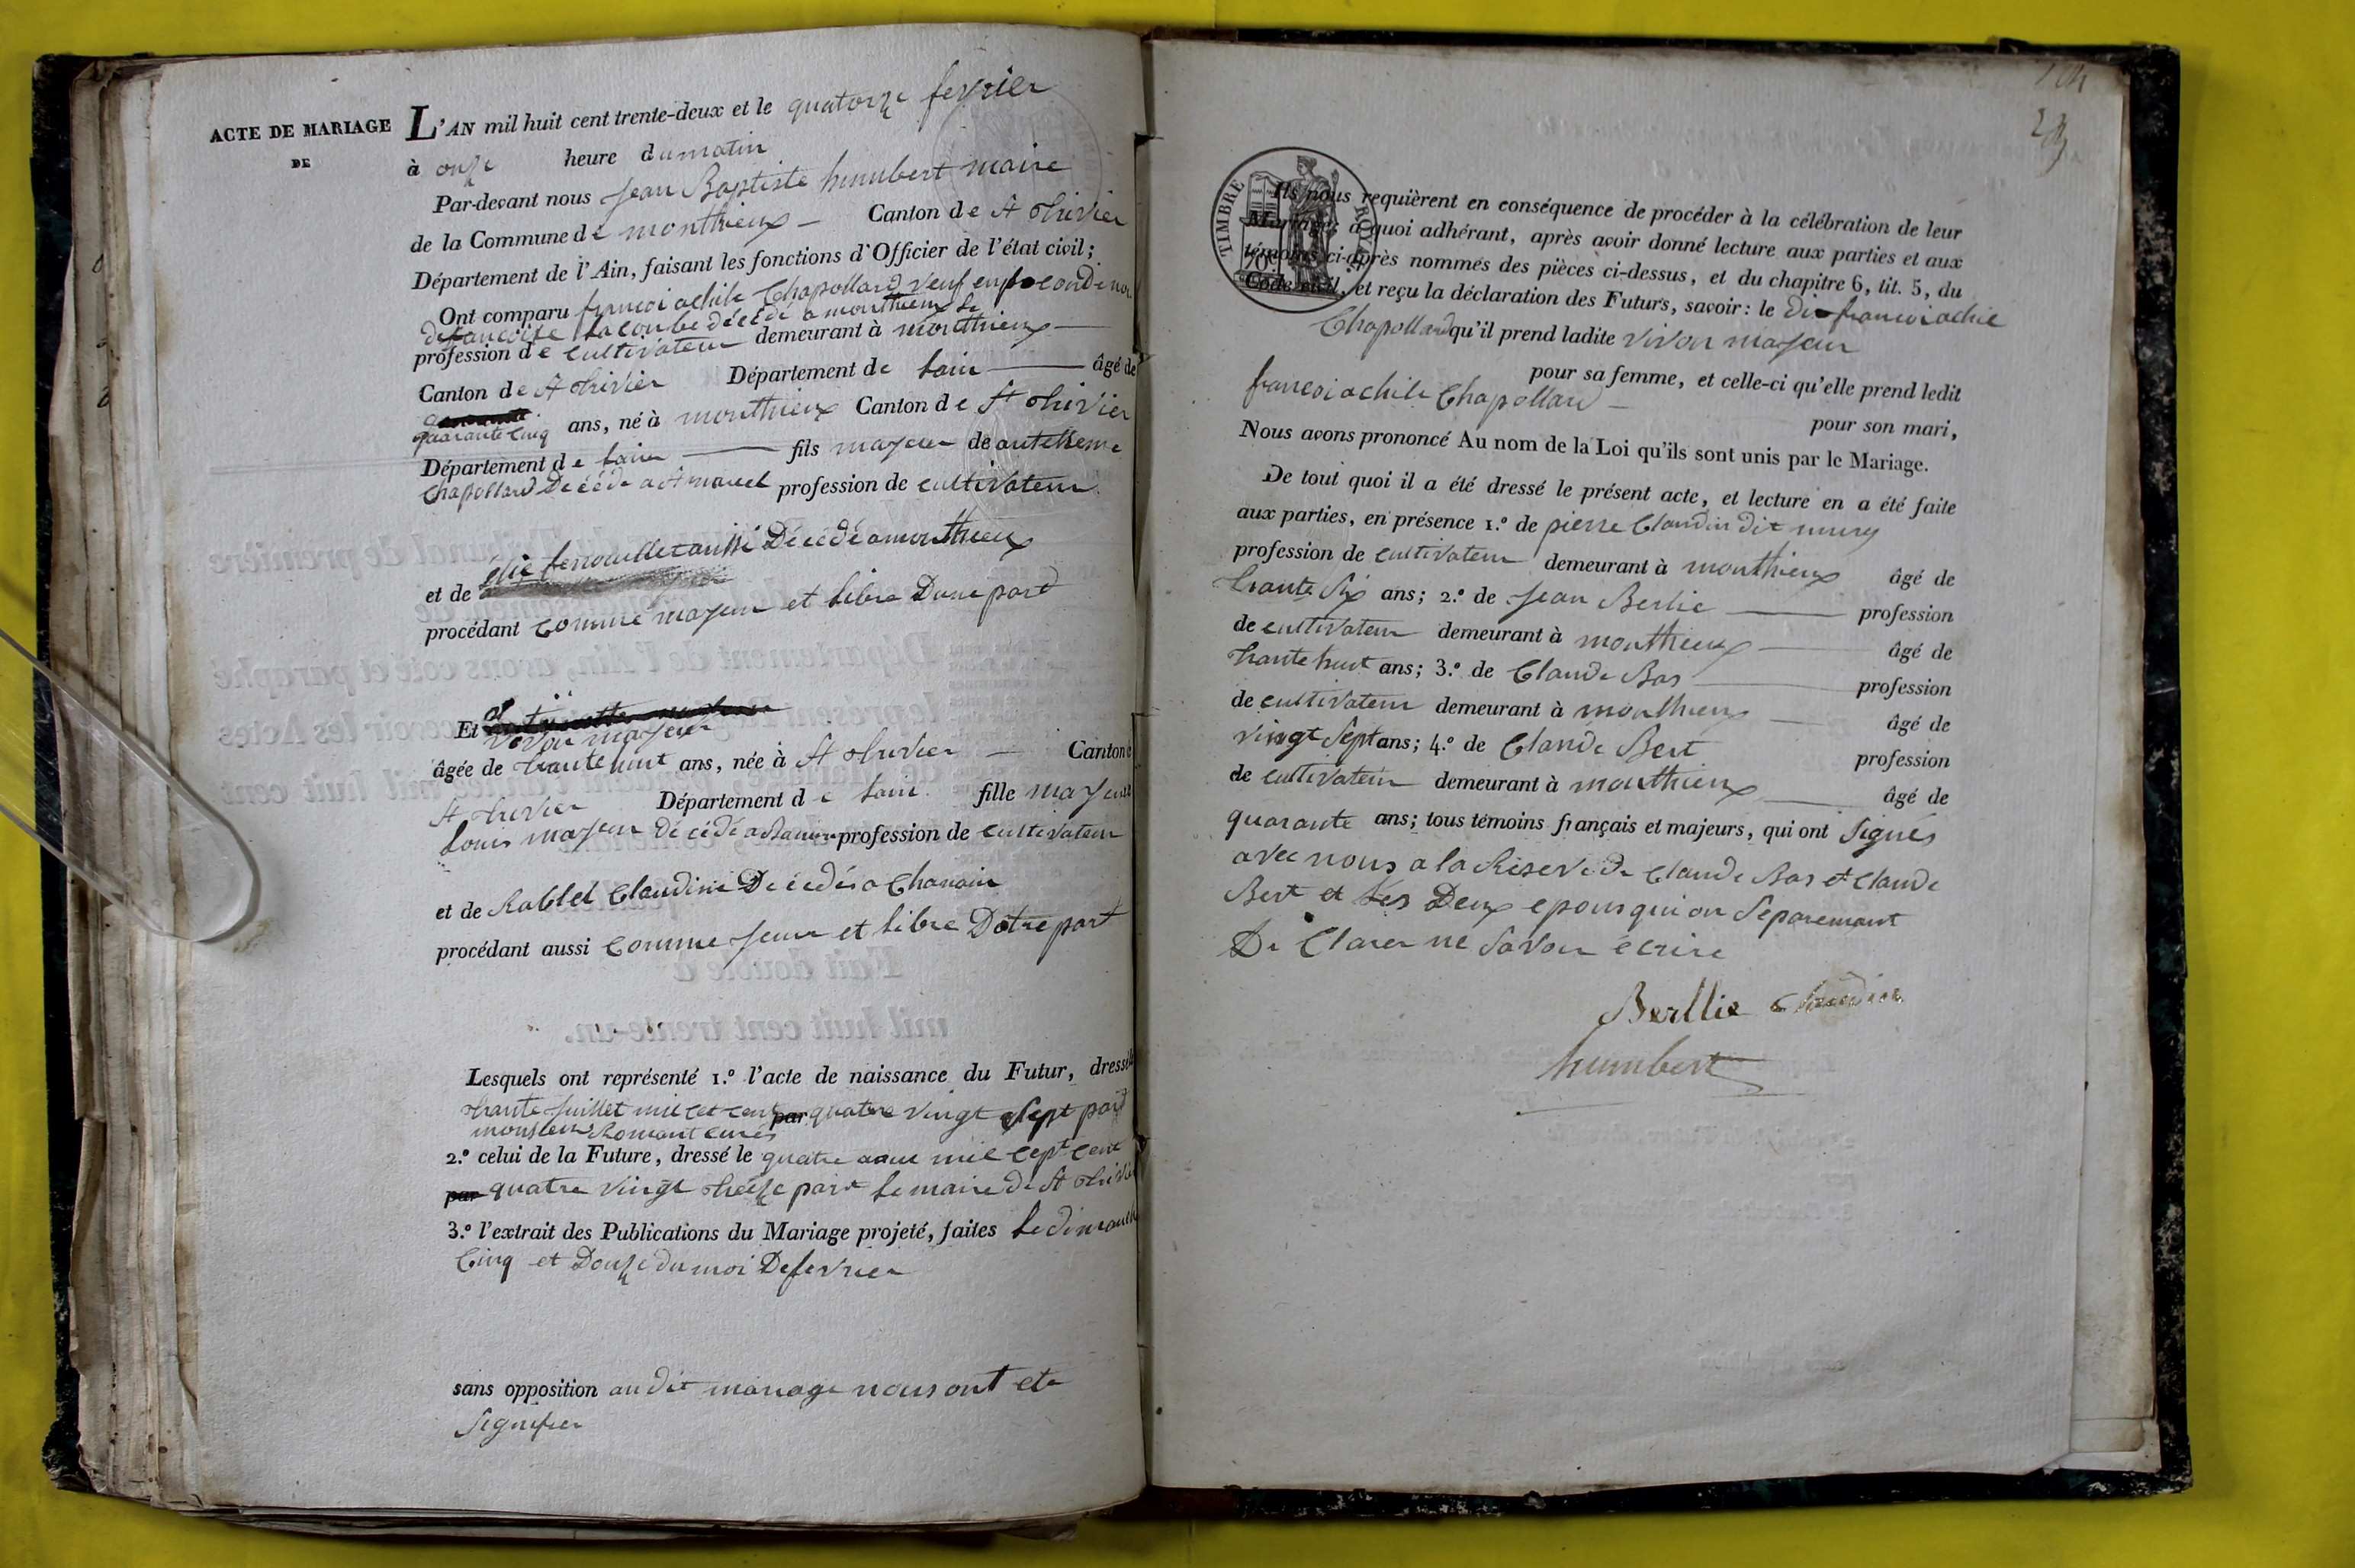 ACTE DE MARIAGE
DE
L'AN mil huit cent trente-deux et le quatorze fevrier
à onze heure du matin
Par-devant nous Jean Baptiste humbert maire
de la Commune de monthieux — Canton de St trivier
Département de l'Ain, faisant les fonctions d'Officier de l'état civil;
Ont comparu francoi achile Chapollard veuf en
de francoise Lacombe décédé a monthieux le
profession de cultivateur demeurant à monthieux —
Canton de St trivier Département de lain — âgé de
quarante cinq ans, né à monthieux Canton de St trivier
Département de lain — fils majeur de antelheme
Chapollard décédé a St marcel profession de cultivateur
et de aussi Décédé a monthieux
procédant comme majeur et libre Dune part
Et
vivon majeur
âgée de trante huit ans, née à St trivier — Canton
St trivier Département de lain fille majeur
Louis majeur décédé a profession de cultivateur
et de Rablet Claudine Décédés a Chanain
procédant aussi comme jeur et libre Dotre part
Lesquels ont représenté 1.º l'acte de naissance du Futur, dressé le
trante juillet mil cet cent par quatre vingt sept part
monsieur Romant curés
2.º celui de la Future, dressé le quatre mil cept cent
par quatre vingt treize part le maire de St trivier
3.º l'extrait des Publications du Mariage projeté, faites le dimanch
Cinq et Douze du moi De fevrier
sans opposition au dit mariage nous ont ete
signifier
TIMBRE ROYAL
Ils nous requièrent en conséquence de procéder à la célébration de leur
Mariage; à quoi adhérant, après avoir donné lecture aux parties et aux
témoins ci-après nommés des pièces ci-dessus, et du chapitre 6, tit. 5, du
Code civil, et reçu la déclaration des Futurs, savoir: le dit francoi achile
Chapollard qu'il prend ladite vivon majeur
pour sa femme, et celle-ci qu'elle prend ledit
francoi achile Chapollard — pour son mari,
Nous avons prononcé Au nom de la Loi qu'ils sont unis par le Mariage.
De tout quoi il a été dressé le présent acte, et lecture en a été faite
aux parties, en présence 1.º de pierre Claudin dit mury
profession de cultivateur demeurant à monthieux âgé de
trante six ans; 2.º de Jean Berlie — profession
de cultivateur demeurant à monthieux — âgé de
trante huit ans; 3.º de Claude Bas — profession
de cultivateur demeurant à monthieux — âgé de
vingt sept ans; 4.º de Claude Bert profession
de cultivateur demeurant à monthieux — âgé de
quarante ans; tous témoins français et majeurs, qui ont signés
avec nous a la Réserve de Claude Bas et Claude
Bert et les Deux epous qui on séparemant
De Clarer ne savoir écrire
Berllie Claudin
humbert